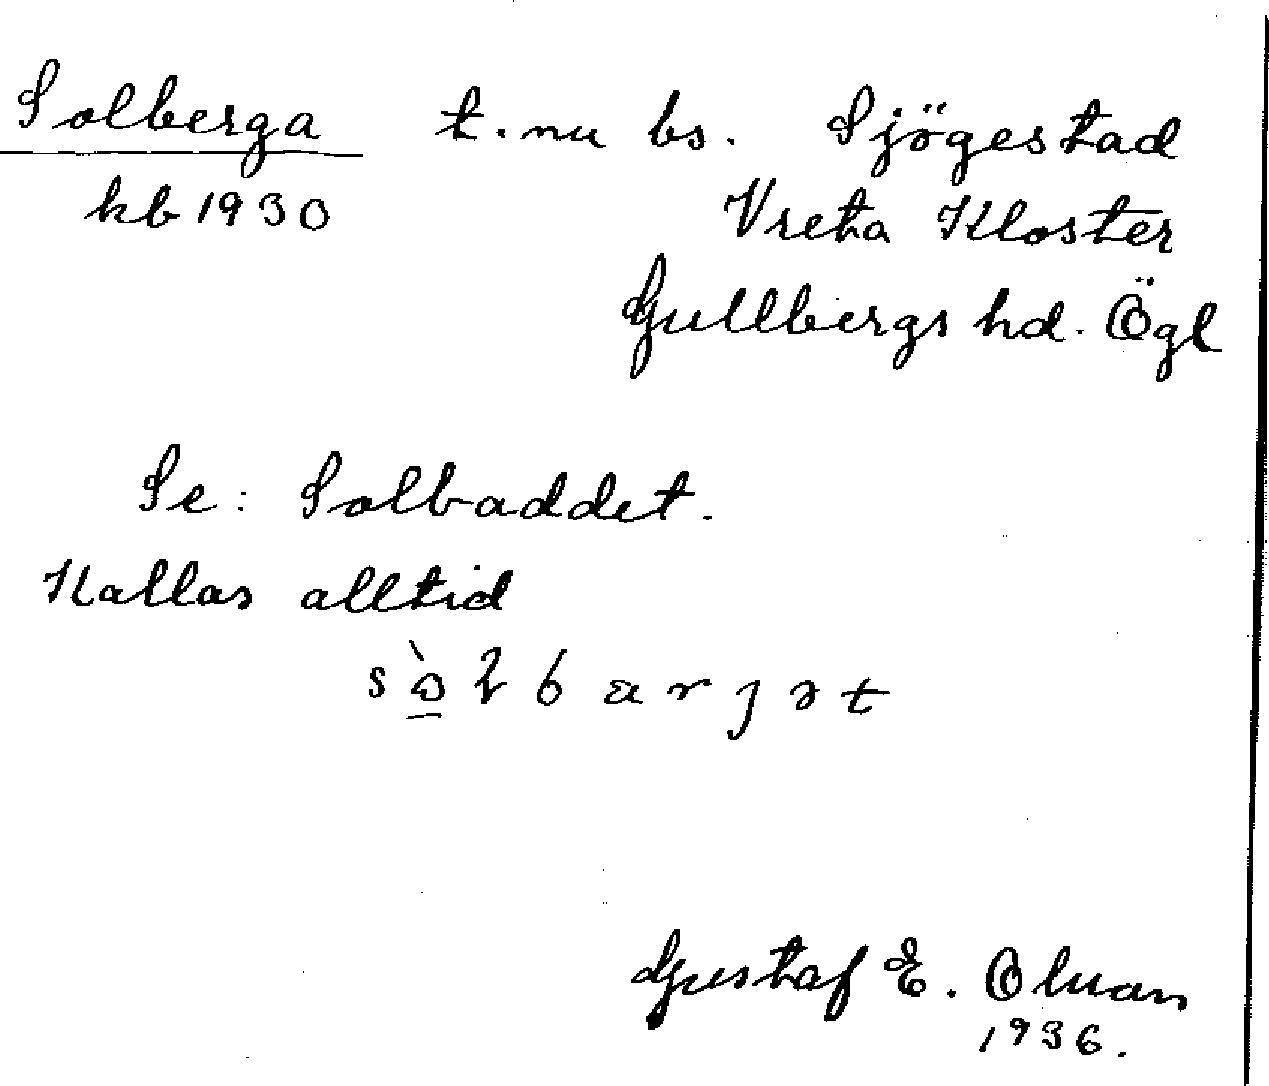 Solberga t. nu bs. Sjögestad
kb 1930 Vreta Kloster
Gullbergs hd. Ögl
Se: Solbaddet.
Kallas alltid
sò̱ɫbarjət
Gustaf E.
1936.